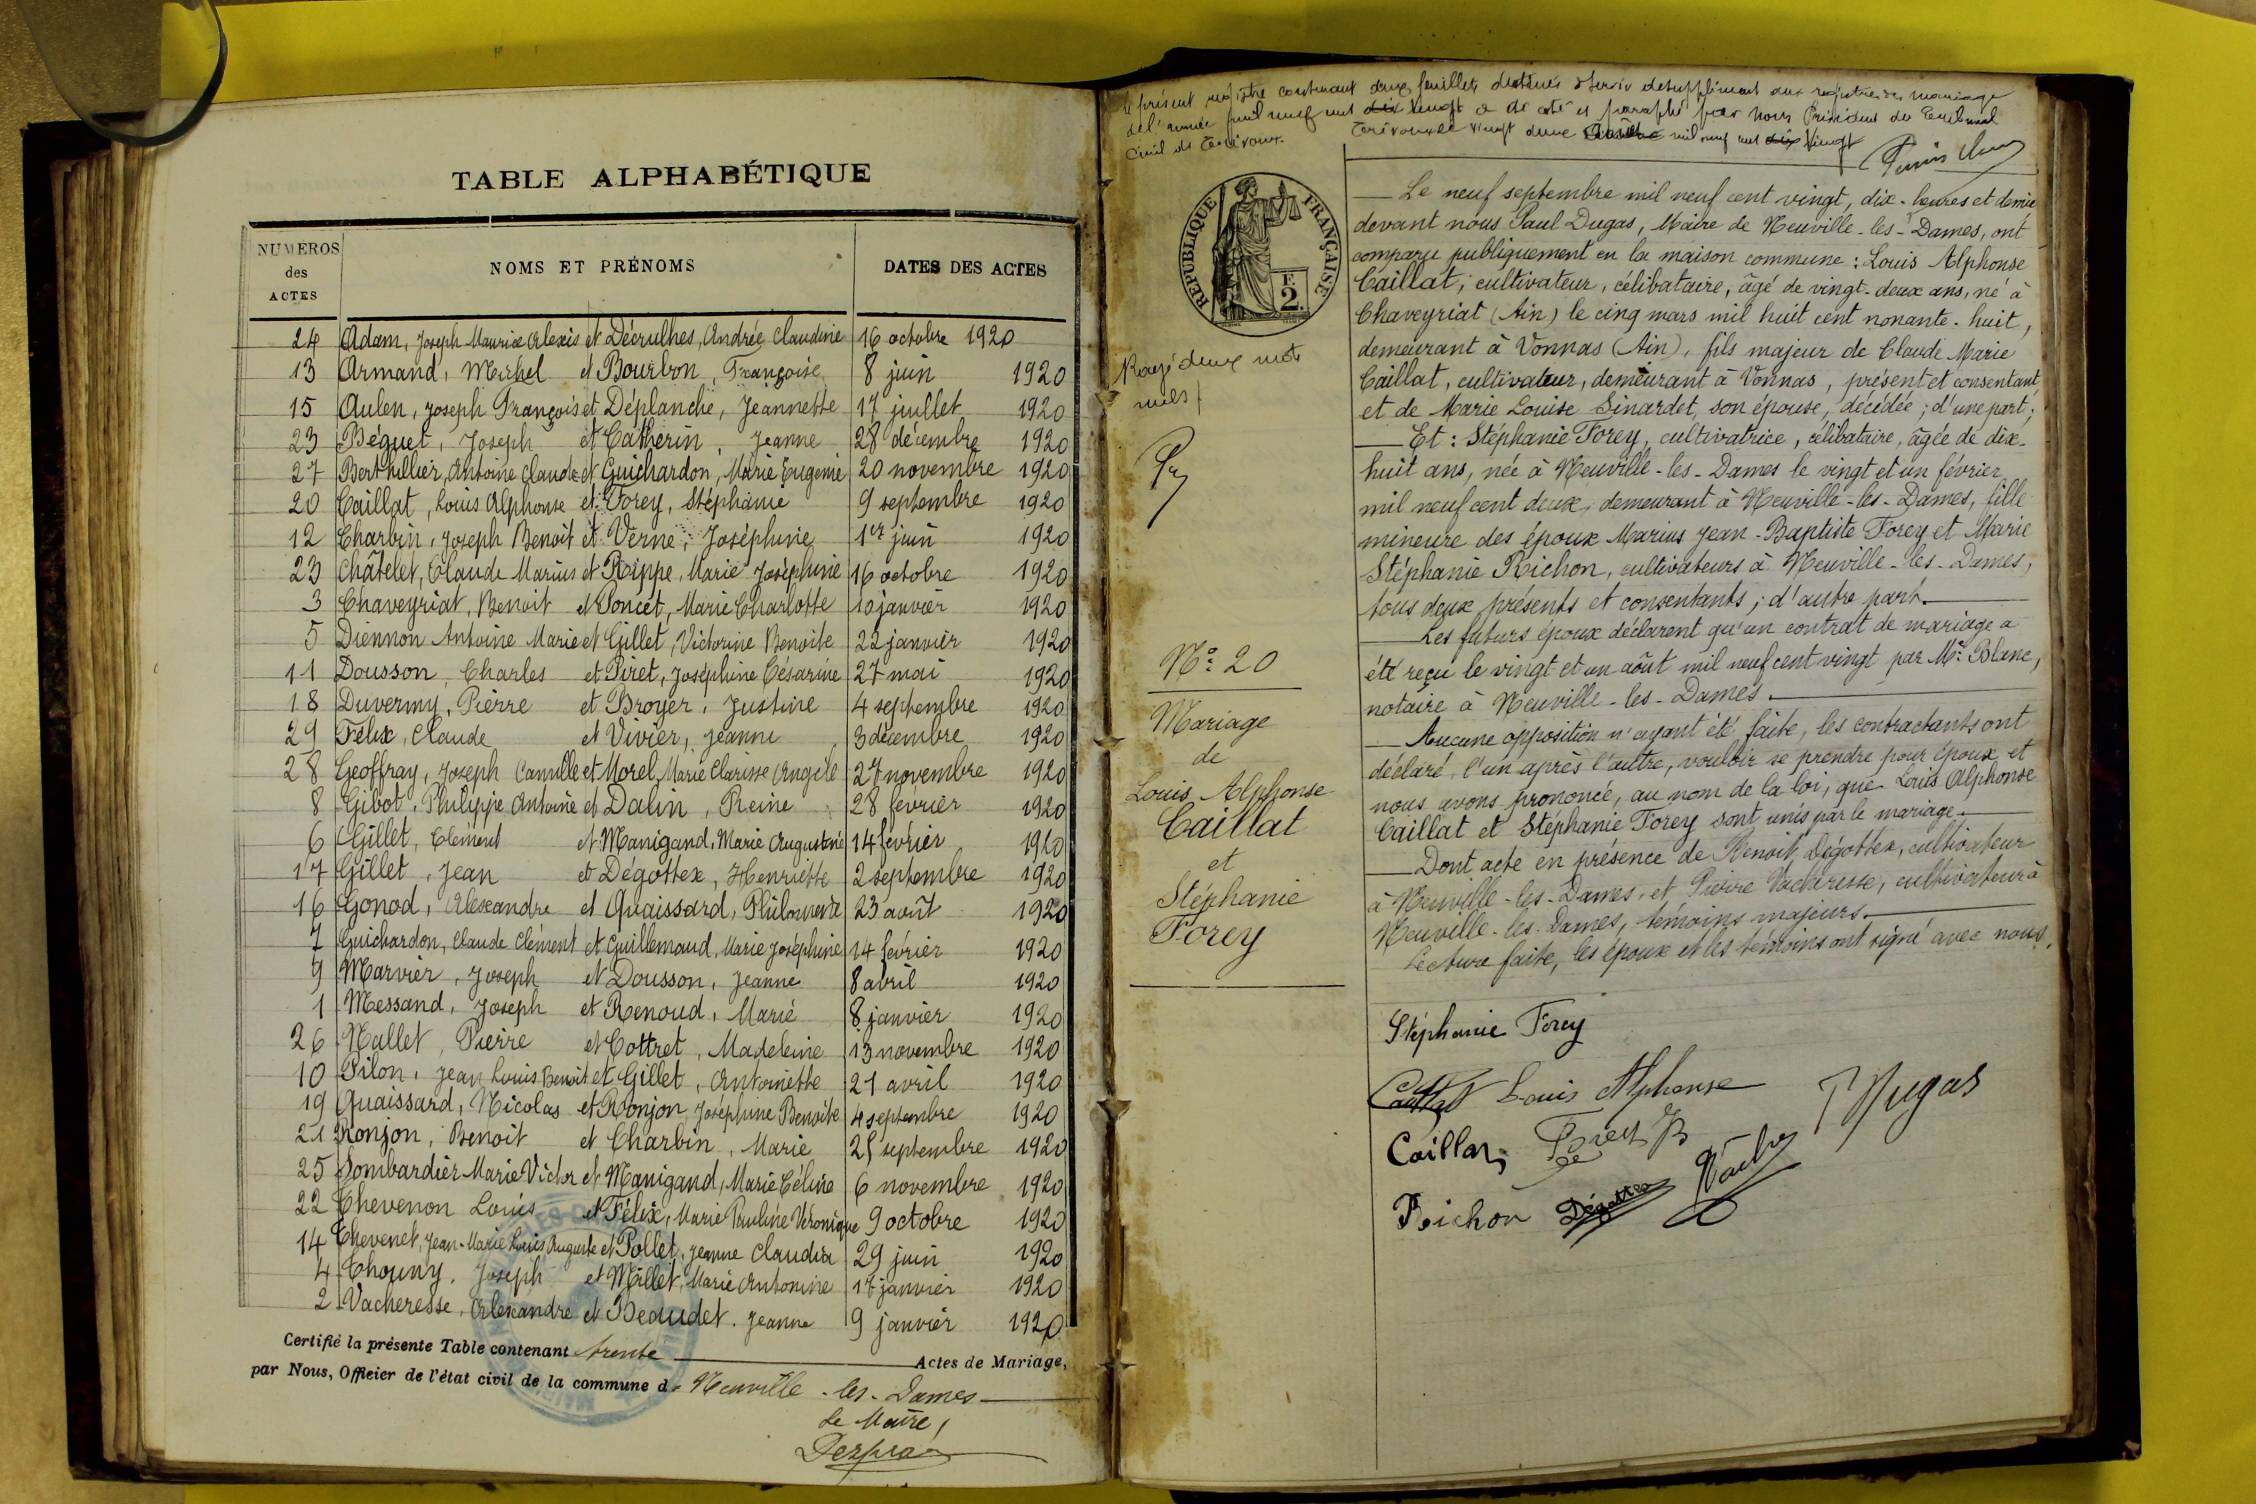 TABLE ALPHABÉTIQUE
NUMÉROS des ACTES
NOMS ET PRÉNOMS
DATES DES ACTES
24 Adam, Joseph Maurice Alexis et Décrulhes, Andrée Claudine 16 octobre 1920
13 Armand, Michel et Bourbon, Françoise 8 juin 1920
15 Aulen, Joseph François et Déplanche, Jeannette 17 juillet 1920
23 Béguet, Joseph et Catherin, Jeanne 28 décembre 1920
27 Berthillier, Antoine Claude et Guichardon, Marie Eugenie 20 novembre 1920
20 Caillat, Louis Alphonse et Forey, Stéphanie 9 septembre 1920
12 Charbin, Joseph Benoit et Verne, Joséphine 1er juin 1920
23 Châtelet, Claude Marius et Rippe, Marie Joséphine 16 octobre 1920
3 Chaveyriat, Benoit et Poncet, Marie Charlotte 10 janvier 1920
5 Diennon Antoine Marie et Gillet, Victorine Benoite 22 janvier 1920
11 Dousson, Charles et Piret, Joséphine Césarine 27 mai 1920
18 Duvermy, Pierre et Broyer, Justine 4 septembre 1920
29 Félix, Claude et Vivier, Jeanne 3 décembre 1920
28 Geoffray, Joseph Camille et Morel, Marie Clarisse Angèle 27 novembre 1920
8 Gibot, Philippe Antoine et Dalin, Reine 28 février 1920
6 Gillet, Clément et Manigand, Marie Augustine 14 février 1920
17 Gillet, Jean et Dégottex, Henriette 2 septembre 1920
16 Gonod, Alexandre et Quaissard, Philomène 23 août 1920
7 Guichardon, Claude Clément et Guillemaud, Marie Joséphine 14 février 1920
9 Marvier, Joseph et Dousson, Jeanne 8 abril 1920
1 Messand, Joseph et Renoud, Marie 8 janvier 1920
26 Nallet, Pierre et Cottret, Madeleine 13 novembre 1920
10 Pilon, Jean Louis Benoit et Gillet, Antoinette 21 avril 1920
19 Quaissard, Nicolas et Ronjon, Joséphine Benoite 4 septembre 1920
21 Ronjon, Benoit et Charbin, Marie 25 septembre 1920
25 Sombardier Marie Victor et Manigand, Marie Céline 6 novembre 1920
22 Thevenon Louis et Félix, Marie Pauline Véronique 9 octobre 1920
14 Thevenet, Jean-Marie Louis Auguste et Pollet, Jeanne Claudia 29 juin 1920
4 Thouny, Joseph et Millet, Marie Antonine 17 janvier 1920
2 Vacheresse, Alexandre et Beaudet, Jeanne 9 janvier 1920
Certifié la présente Table contenant trente Actes de Mariage,
par Nous, Officier de l'état civil de la commune de Neuville-les-Dames
Le Maire,
Le présent registre contenant deux feuillets destinés à servir de supplément aux registres de mariage
de l'année mil neuf cent dix vingt a été coté et paraphé par nous Président du Tribunal
civil de Trévoux. Trévoux le vingt deux mil neuf cent dix vingt
RÉPUBLIQUE FRANÇAISE
F. 2.
Rayé deux mots
nuls
No. 20
Mariage
de
Louis Alphonse
Caillat
et
Stéphanie
Forey
Le neuf septembre mil neuf cent vingt, dix-heures et demie
devant nous Paul Dugas, Maire de Neuville-les-Dames, ont
comparu publiquement en la maison commune : Louis Alphonse
Caillat, cultivateur, célibataire, âgé de vingt-deux ans, né à
Chaveyriat (Ain) le cinq mars mil huit cent nonante-huit,
demeurant à Vonnas (Ain), fils majeur de Claude Marie
Caillat, cultivateur, demeurant à Vonnas, présent et consentant
et de Marie Louise Sinardet, son épouse, décédée ; d'une part ;
Et : Stéphanie Forey, cultivatrice, célibataire, âgée de dix-
huit ans, née à Neuville-les-Dames le vingt et un février
mil neuf cent deux, demeurant à Neuville-les-Dames, fille
mineure des époux Marius Jean-Baptiste Forey et Marie
Stéphanie Richon, cultivateurs à Neuville-les-Dames,
tous deux présents et consentants ; d'autre part.
Les futurs époux déclarent qu'un contrat de mariage a
été reçu le vingt et un août mil neuf cent vingt par Me Blanc,
notaire à Neuville-les-Dames.
Aucune opposition n'ayant été faite, les contractants ont
déclaré, l'un après l'autre, vouloir se prendre pour époux et
nous avons prononcé, au nom de la loi, que Louis Alphonse
Caillat et Stéphanie Forey sont unis par le mariage.
Dont acte en présence de Benoit Dégottex, cultivateur
à Neuville-les-Dames, et Pierre Vacheresse, cultivateur à
Neuville-les-Dames, témoins majeurs.
Lecture faite, les époux et les témoins ont signé avec nous.
Stéphanie Forey
Caillat Louis Alphonse
P Dugas
Caillat
Forey JB
Richon
Dégottex